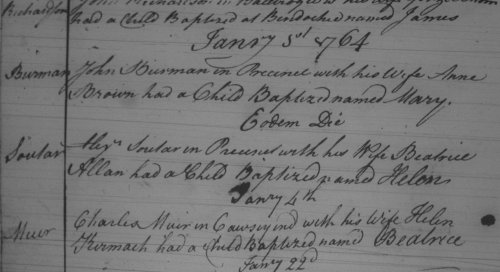 Richardson
had a Child Baptized at Bendochie named James
Janry 1st 1764
Burman John Burman in Precinct with his Wife Anne
Brown had a Child Baptized named Mary.
Eodem Die
Soutar Alexr Soutar in Precinct with his Wife Beatrice
Allan had a Child Baptized named Helen
Janry 4th
Muir Charles Muir in Cawseyend with his Wife Helen
had a Child Baptized named Beatrice
Janry 22d